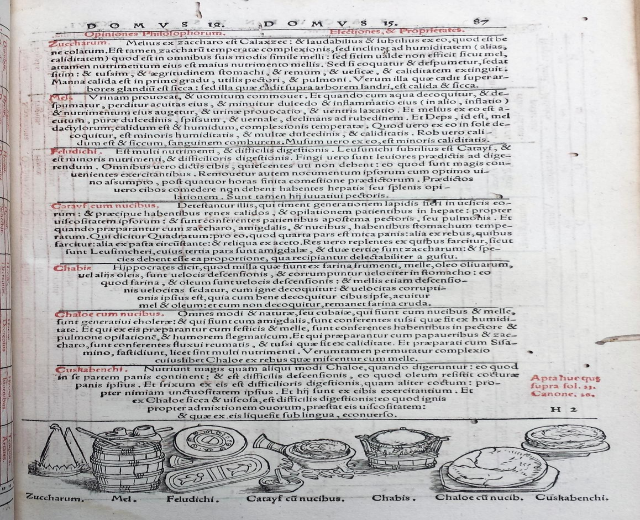 DOMVS 12. DOMVS 15. 87
Opiniones Philosophorum. Electiones, & Proprietates.
Zuccharum. Melius ex zaccharo est Calaxzec: & laudabilius & subtilius ex eo, quod est be
ne colarum. Est tamen zaccharū temperatæ complexionis, sed inclinat ad humiditatem (alias,
caliditatem) quod est in omnibus suis modis simile melli: sed sitim ualde non efficit sicut mel,
attamen nutrimentum eius est maius nutrimento mellis. Sed si coquatur & despumetur, sedat
sitim: & tussim, & ægritudinem stomachi, & renum, & uesicæ, & caliditatem extinguit.
Manna calida est in primo gradu, utilis pectori, & pulmoni. Verum illa quæ cadit super ar-
bores glandiū est sicca: sed illa quæ cadit supra arborem landri, est calida & sicca.
Mel. Vrinam prouocat, & uomitum commouet. Et quando cum aqua decoquitur, & de-
spumatur, perditur acuitas eius, & minuitur dulcedo & inflammatio eius (in alio, inflatio)
& nutrimenium eius augetur, & urinæ prouocatio, & uentris laxatio. Et melius ex eo est a-
cutum, puræ dulcedinis, spissum, & uernale, declinans ad rubedinem. Et Deps, id est, mel
dactylorum, calidum est & humidum, complexionis temperatæ. Quod uero ex eo in sole de-
coquitur, est minoris humiditatis, & multæ dulcedinis, & caliditatis. Rob uero cali-
dum est & siccum, sanguinem comburens. Musum uero ex eo, est minoris caliditatis.
Feludichi. Est multi nutrimenti, & difficilis digestionis. Leusunichi subtilius est Catayf, &
est minoris nutrimenti, & difficilioris digestionis. Fingi uero sunt leuiores prædictis ad dige-
rendum. Omnibus uero dictis cibis, quiescentes uti non debent: eo quod sunt magis con-
uenientes exercitantibus. Remouetur autem nocumentum ipsorum cum optimo ui-
no assumpto, post quatuor horas finita comestione prædictorum. Prædictos
uero cibos comedere non debent habentes hepatis seu splenis opi-
lationem. Sunt tamen hi iuuatiui pectoris.
Catayf cum nucibus. Detestantur illis, qui timent generationem lapidis fieri in uesicis eo-
rum: & præcipue habentibus renes calidos, & opilationem patientibus in hepate: propter
uiscositatem ipsorum: & sunt conferentes patientibus apostema pectoris, seu pulmonis. Et
quando præparantur cum zaccharo, amigdalis, & nucibus, habentibus stomachum tempe-
ratum. Qui dicitur Quadratum: pro eo, quod quarta pars est mica panis: alia ex rebus, quibus
farcitur: alia ex pasta circūstante: & reliqua ex aceto. Res uero replentes ex quibus farcitur, sicut
sunt Leusinicheri, cuius tertia pars sunt amigdalæ, & duæ tertiæ sunt zaccharum: & spe-
cies debent esse ea proportione, qua recipiantur delectabiliter a gustu.
Chabis Hippocrates dicit, quod milla quæ fiunt ex farina, frumenti, melle, oleo oliuarum,
uel aliis oleis, sunt uelocis descensionis, & corrumpuntur uelociter in stomacho: eo
quod farina, & oleum sunt uelocis descensionis: & mellis etiam descensio-
nis uelocitas sedatur, cum igne decoquitur: & uelocitas corrupti-
onis ipsius est, quia cum bene decoquitur cibus ipse, aeuitur
mel & oleum: et cum non decoquitur, remanet farina cruda.
Chaloe cum nucibus. Omnes modi & naturæ, seu cubaiæ, qui fiunt cum nucibus & melle,
sunt generatiui choleræ: & qui fiunt cum amigdalis, sunt conferentes tussi quæ fit ex humidi-
tate. Et qui ex eis præparantur cum festicis & melle, sunt conferentes habentibus in pectore &
pulmone opilationē, & humorem flegmaticum. Et qui præparantur cum papaueribus & zac-
charo, sunt conferentes fluxui reumatis, & tussi quæ fit ex caliditate. Et præparati cum Sisa-
mino, fastidiunt, licet sint multi nutrimenti. Verumtamen permutatur complexio
cuiuslibet Chaloe ex rebus quæ miscentur cum melle.
Cuskabenchi. Nutriunt magis quam aliqui modi Chaloe, quando digeruntur: eo quod
in se parem panis continent: & est difficilis descensionis, eo quod oleum resistit cocturæ
panis ipsius. Et frixum ex eis est difficilioris digestionis, quam aliter coctum: pro-
pter nimiam unctuositatem ipsius. Et hij sunt ex cibis exercitantium. Et
ex Chaloe sicca & uiscosa, est difficilis digestionis: eo quod ignis
propter admixtionem ouorum, præstat eis uiscositatem:
& quæ ex eis liquescit sub lingua, econuerso.
Apta hæc quę
supra fol. 23.
Canone. 20.
H 2
Zuccharum. Mel. Feludichi. Catayf cū nucibus. Chabis. Chaloe cū nucib. Cuskabenchi.